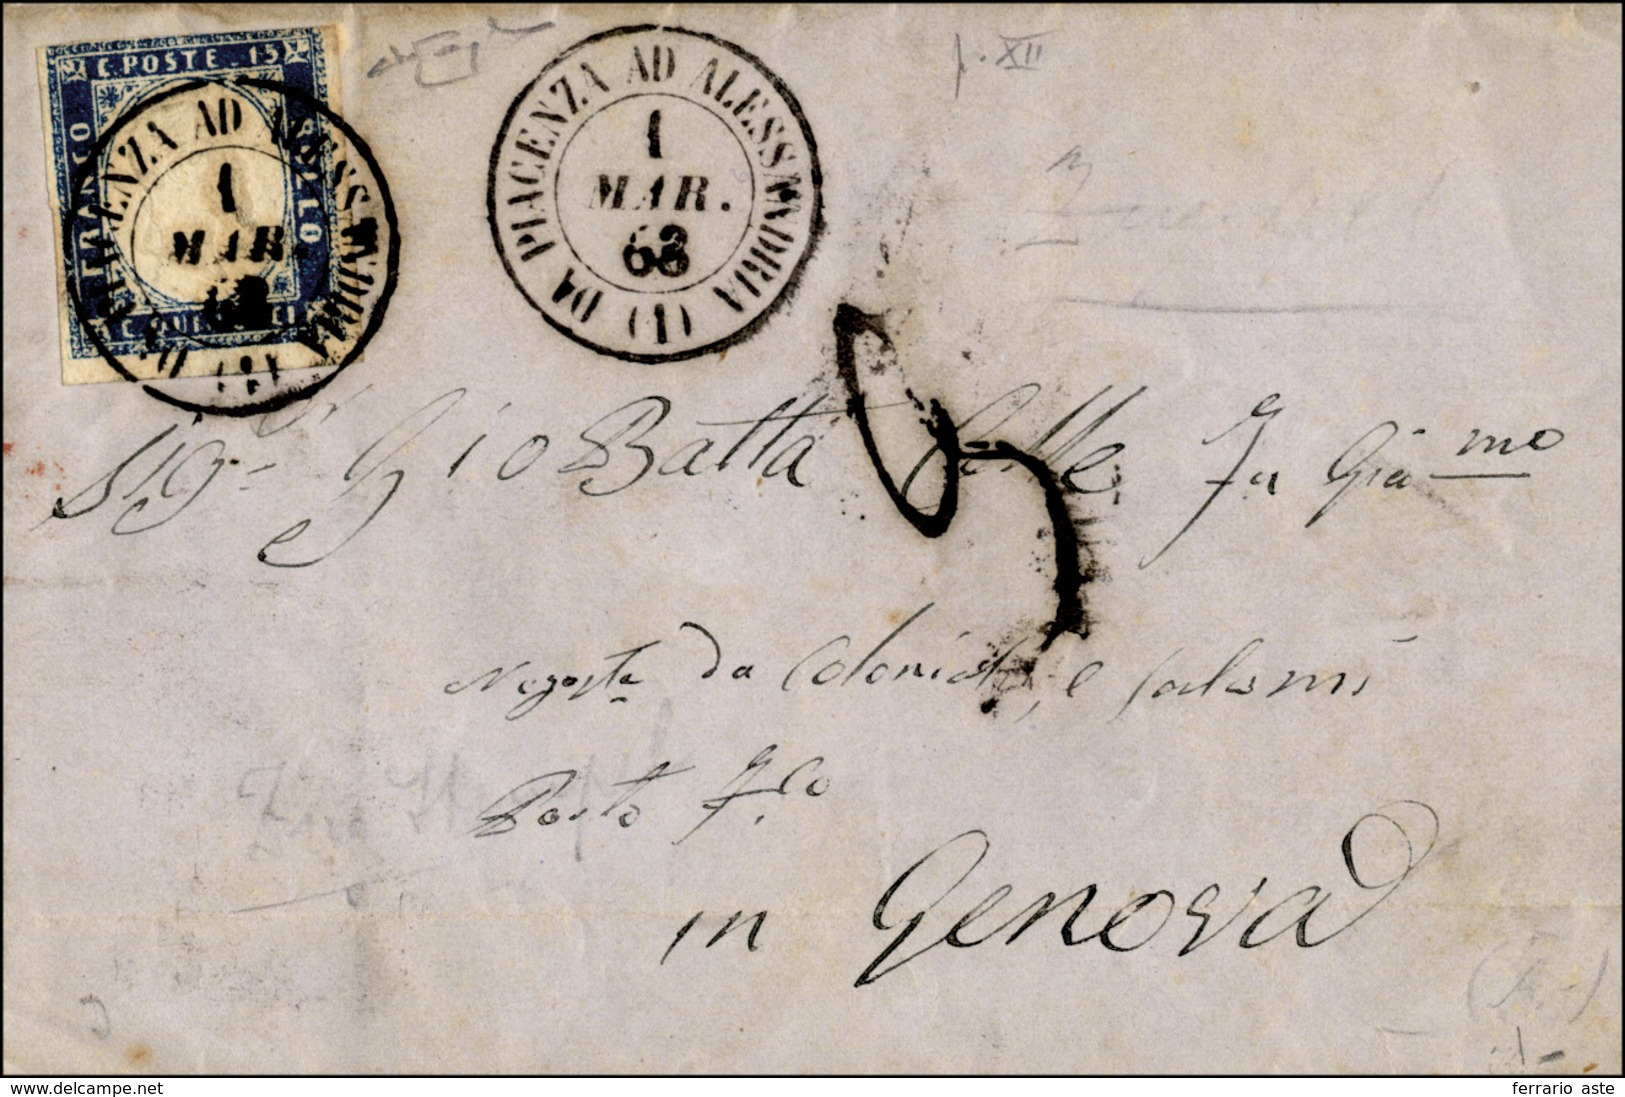 C. POSTE. 15
FRANCO
BOLLO
C. QUINDICI
DA PIACENZA AD ALESSANDRIA (1)
1
MAR.
63
DA PIACENZA AD ALESSANDRIA (1)
1
MAR.
63
p. XII
Sigr. Gio Batta Celle fu Giamo
Negozte da Coloniali, e Salami
Porto fco
in Genova
ferrario aste